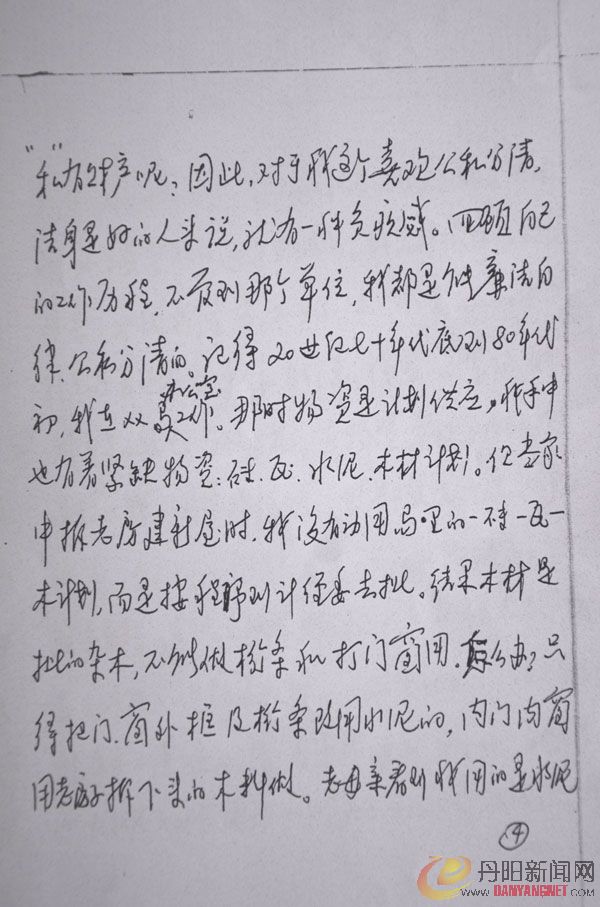 “私”有财产呢？因此，对于我这个喜欢公私分清，
洁身是好的人来说，就有一种负疚感。回顾自己
的工作历程，不管到那个单位，我都是做廉洁自
律、公私分清的。记得20世纪七十年代底到80年代
办公室
初，我在 工作。那时物资是计划供应，我手中
也有着紧缺物资：砖、瓦、水泥、木材计划。但当家
中拆老房建新屋时，我没有动用局里的一砖一瓦一
木计划，而是按程序到计经委去批。结果木材是
批的杂木，不能做桁条和打门窗用，怎么办？只
得把门、窗外框及桁条改用水泥的，内门内窗
用老房子拆下来的木料做。老母亲看到我用的是水泥
④
丹阳新闻网
WWW.DANYANGNET.COM